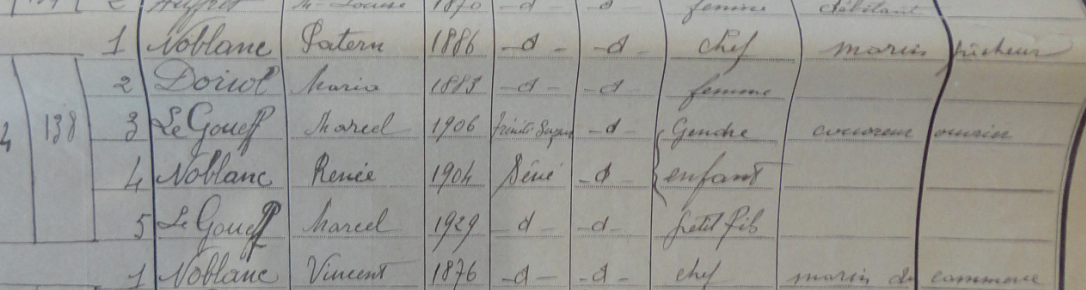 2 Auffret Mie Louise 1870 -d- -d- femme débitant
1 Noblanc Patern 1886 -d- -d- chef marin pêcheur
2 Doriol Maria 1883 -d- -d- femme
4 138 3 Le Goueff Marcel 1906 -d- Gendre marine
4 Noblanc Renée 1904 Séné -d- enfant
5 Le Goueff Marcel 1929 -d- -d- petit fils
1 Noblanc Vincent 1876 -d- -d- chef marin du commerce